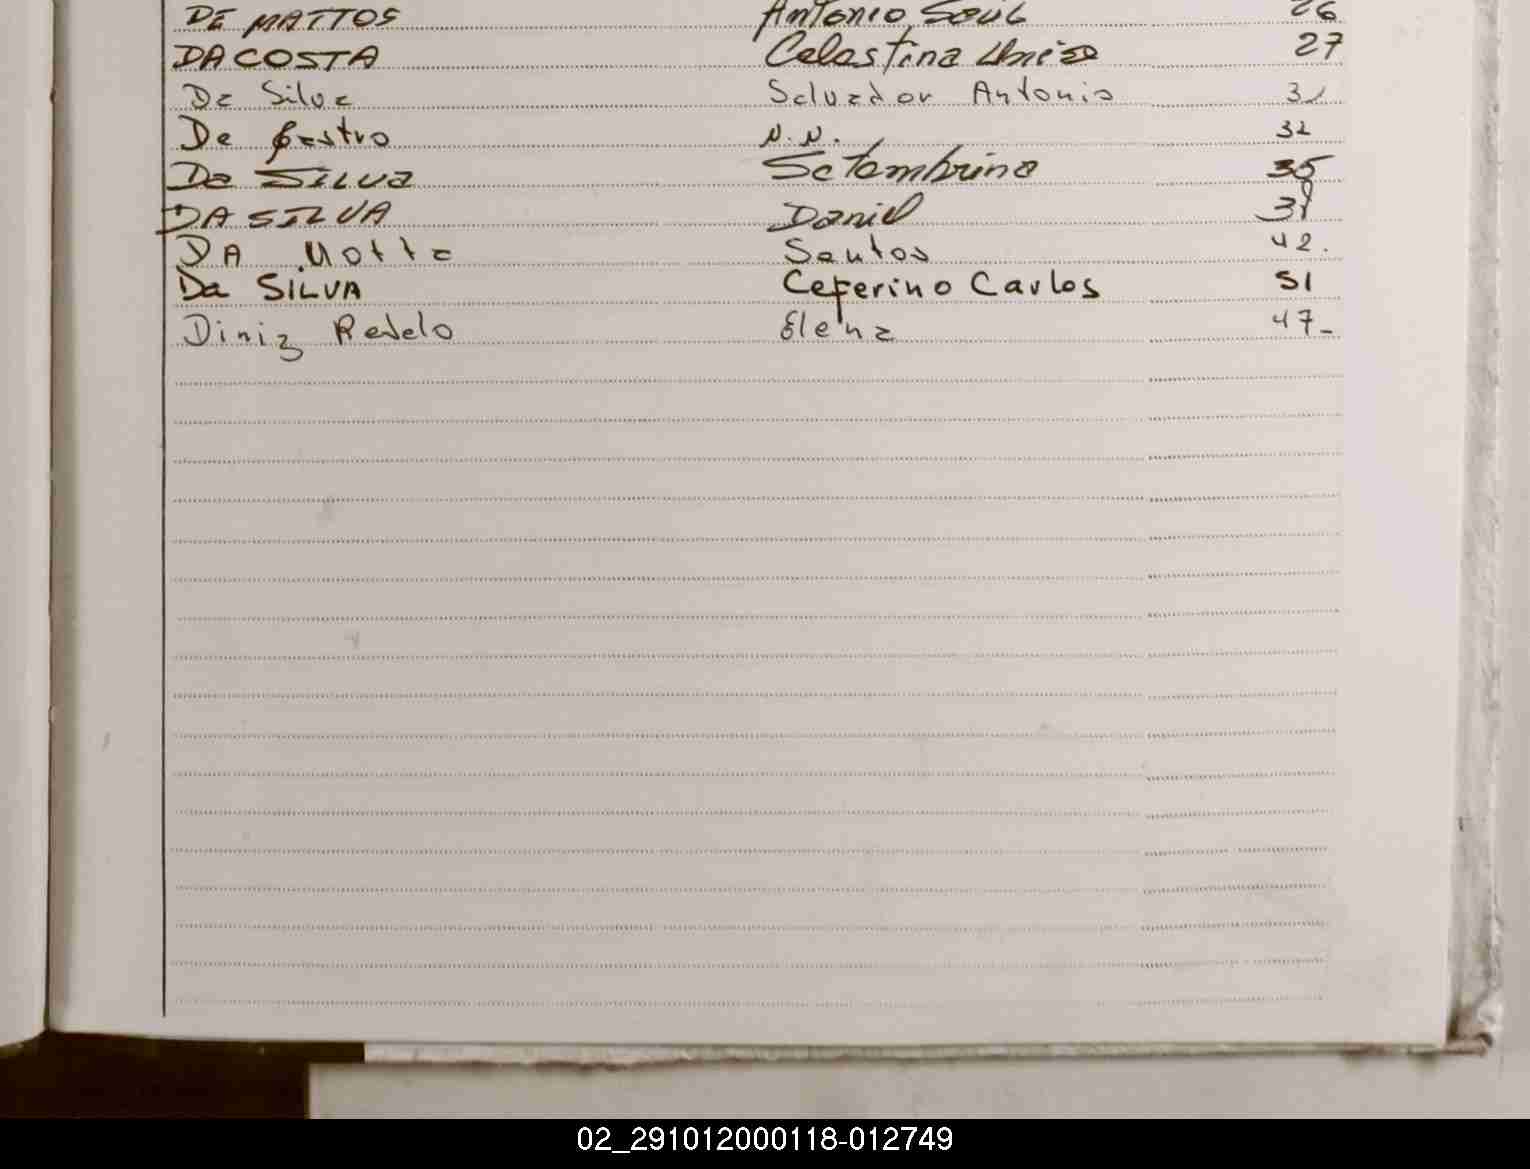 DE MATTOS Antonio Saul 26
DA COSTA Celestina 27
Da Silva Salvador Antonio 31
De Castro N.N. 32
Da SILVA Setembrina 35
DA SILVA Daniel
DA Motta Santos 42.
Da SILVA Ceferino Carlos 51
Diniz Rebelo Elena 47-
02_291012000118-012749